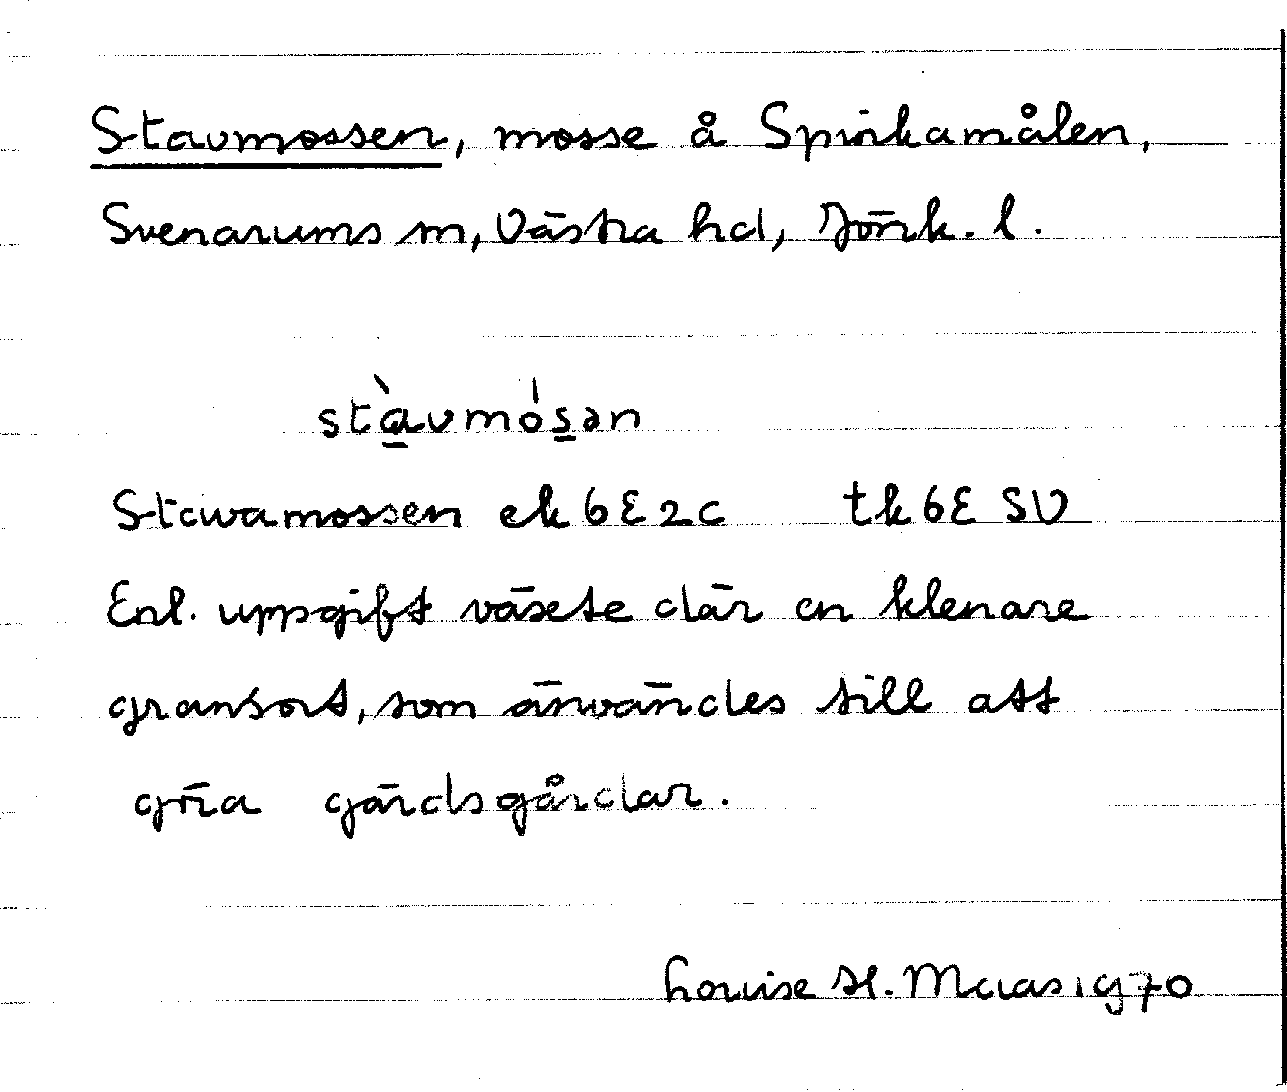 Stavmossen, mosse å Spinkamålen,
Svenarums sn, Västra hd, Jönk. l.
stàvmósən
Stavamossen ek 6E2c tk 6E SV
Enl. uppgift växete där en klenare
gransort, som användes till att
göra gärdsgårdar.
Louise H. Maas 1970